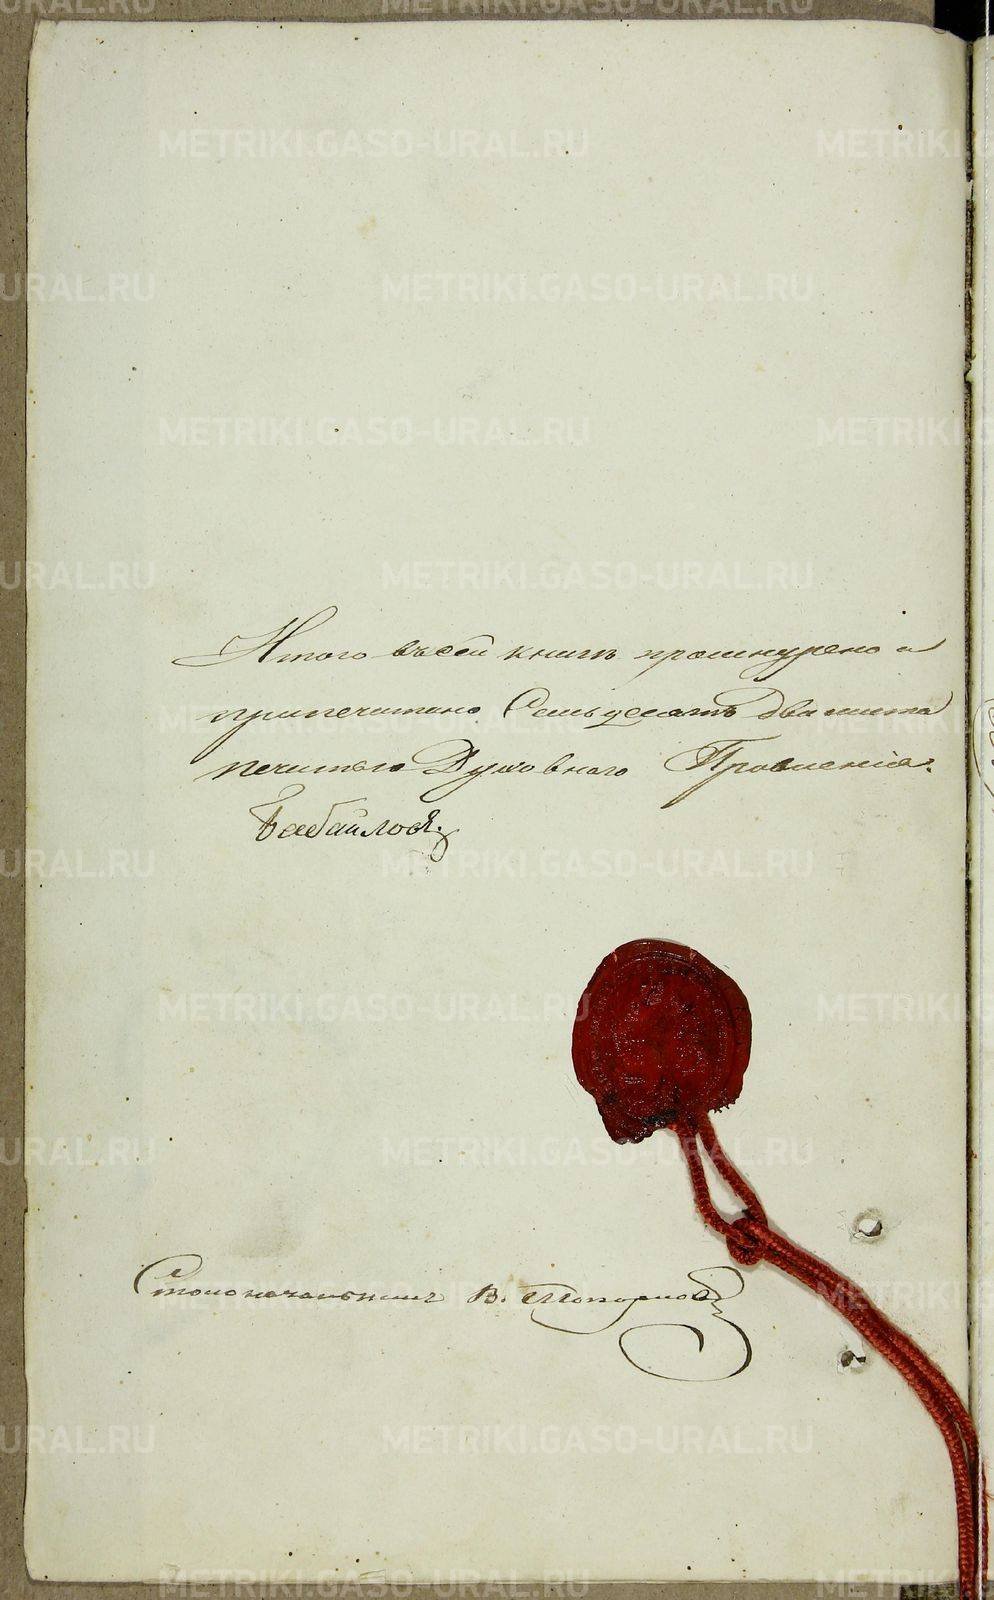 Итого въ сей книгѣ прошнурено и
припечатано Семьдесятъ два листа
печатью Духовнаго Правленія.
Столоначальникъ В.
METRIKI.GASO-URAL.RU